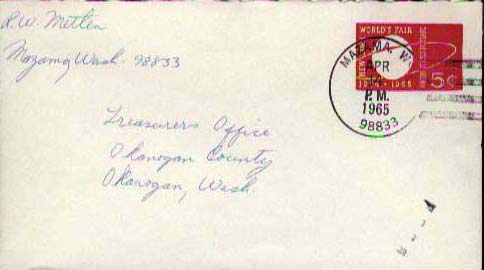 R.W. Metlen
Mazama, Wash. 98833
WORLD'S FAIR
1964-1965
5¢
MAZAMA, W
APR
P.M.
1965
98833
Treasurer's Office
Okanogan County
Okanogan, Wash.